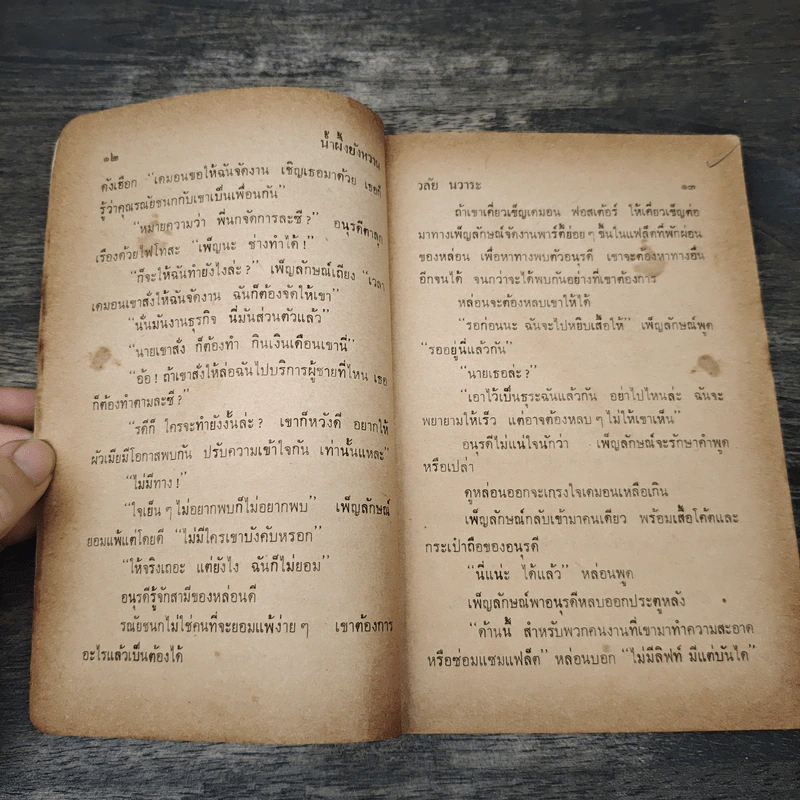 ๑๒
น้ำผึ้งยังหวาน
ดังเฮือก “เดมอนขอให้ฉันจัดงาน เชิญเธอมาด้วย เธอก็
รู้ว่าคุณรณัยชนกกับเขาเป็นเพื่อนกัน”
“หมายความว่า พี่นกจัดการละซี?” อนุรดีตาลุก
เรืองด้วยไฟโทสะ “เพ็ญนะ ช่างทำได้!”
“ก็จะให้ฉันทำยังไงล่ะ?” เพ็ญลักษณ์เถียง “เวลา
เดมอนเขาสั่งให้ฉันจัดงาน ฉันก็ต้องจัดให้เขา”
“นั่นมันงานธุรกิจ นี่มันส่วนตัวแล้ว”
“นายเขาสั่ง ก็ต้องทำ กินเงินเดือนเขานี่”
“อ้อ! ถ้าเขาสั่งให้ล่อฉันไปบริการผู้ชายที่ไหน เธอ
ก็ต้องทำตามละซี?”
“รดีก็ ใครจะทำยังงั้นล่ะ? เขาก็หวังดี อยากให้
ผัวเมียมีโอกาสพบกัน ปรับความเข้าใจกัน เท่านั้นแหละ”
“ไม่มีทาง!”
“ใจเย็น ๆ ไม่อยากพบก็ไม่อยากพบ” เพ็ญลักษณ์
ยอมแพ้แต่โดยดี “ไม่มีใครเขาบังคับหรอก”
“ให้จริงเถอะ แต่ยังไง ฉันก็ไม่ยอม”
อนุรดีรู้จักสามีของหล่อนดี
รณัยชนกไม่ใช่คนที่จะยอมแพ้ง่าย ๆ เขาต้องการ
อะไรแล้วเป็นต้องได้
วลัย นวาระ
๑๓
ถ้าเขาเคี่ยวเข็ญเดมอน ฟอสเต้อร์ ให้เคี่ยวเข็ญต่อ
มาทางเพ็ญลักษณ์จัดงานพาร์ตี้ย่อย ๆ ขึ้นในแฟล็ตที่พักผ่อน
ของหล่อน เพื่อหาทางพบตัวอนุรดี เขาจะต้องหาทางอื่น
อีกจนได้ จนกว่าจะได้พบกันอย่างที่เขาต้องการ
หล่อนจะต้องหลบเขาให้ได้
“รอก่อนนะ ฉันจะไปหยิบเสื้อให้” เพ็ญลักษณ์พูด
“รออยู่นี่แล้วกัน”
“นายเธอล่ะ?”
“เอาไว้เป็นธุระฉันแล้วกัน อย่าไปไหนล่ะ ฉันจะ
พยายามให้เร็ว แต่อาจต้องหลบ ๆ ไม่ให้เขาเห็น”
อนุรดีไม่แน่ใจนักว่า เพ็ญลักษณ์จะรักษาคำพูด
หรือเปล่า
ดูหล่อนออกจะเกรงใจเดมอนเหลือเกิน
เพ็ญลักษณ์กลับเข้ามาคนเดียว พร้อมเสื้อโค้ตและ
กระเป๋าถือของอนุรดี
“นี่แน่ะ ได้แล้ว” หล่อนพูด
เพ็ญลักษณ์พาอนุรดีหลบออกประตูหลัง
“ด้านนี้ สำหรับพวกคนงานที่เขามาทำความสะอาด
หรือซ่อมแซมแฟล็ต” หล่อนบอก “ไม่มีลิฟท์ มีแต่บันได”